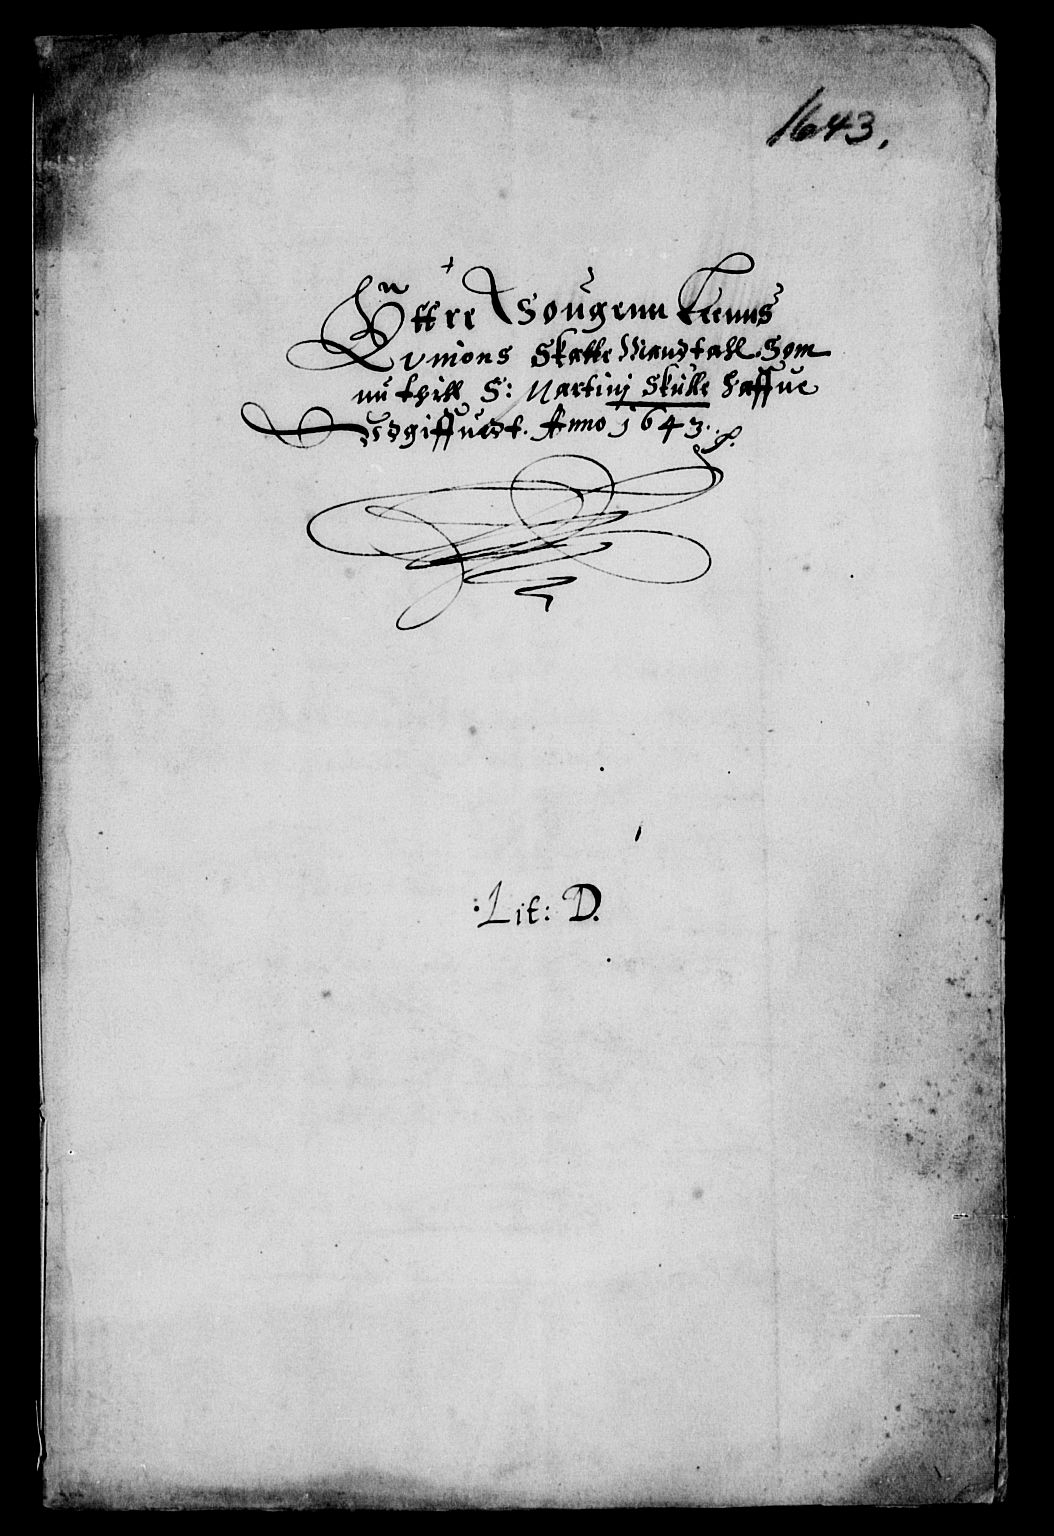 1643.
Yttre Sougenn Leenns
Unions Skatte Mandtall Som
nu thill S: Martinj Skulle haffue
Udgiffuedt. Anno 1643.
:Lit: D.